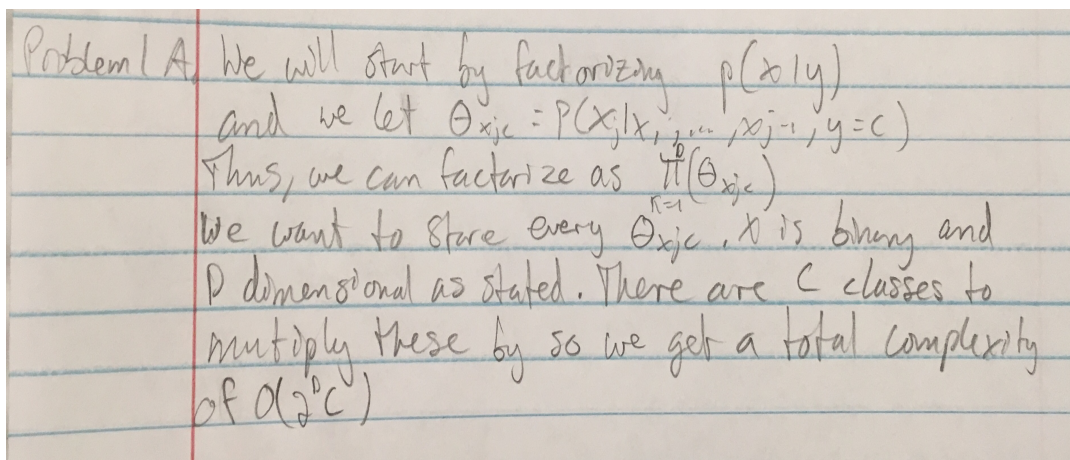 Problem 1 A. We will start by factorizing p(x|y)
and we let θxjc = P(xj|x1,...,xj-1, y=c)
Thus, we can factorize as D∏i=1(θxjc)
We want to store every θxjc. x is binary and
D dimensional as stated. There are C classes to
mutiply these by so we get a total complexity
of O(2^D C)